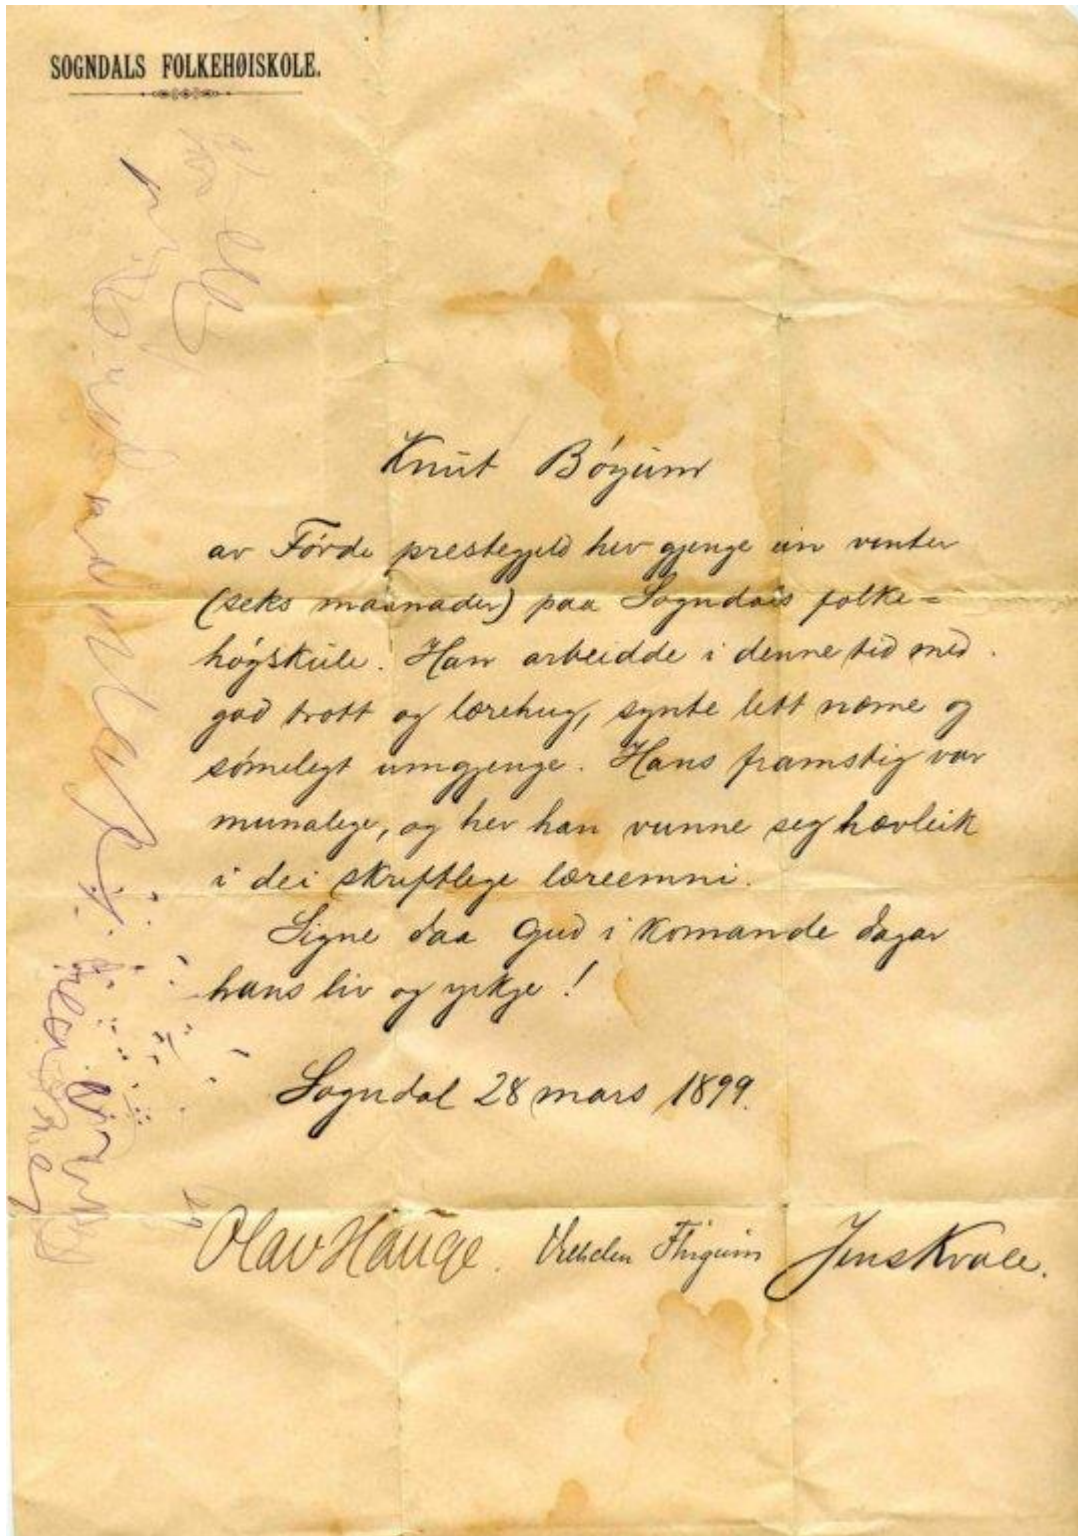 SOGNDALS FOLKEHØISKOLE.
Knut Bóyum
av Fórde prestegjeld hev gjenge ein venter
(seks maanader) paa Sogndals folke=
hógskule. Han arbeidde i denne tid med
god trott og lærehug, synte lett næme og
sómelegt umgjenge. Hans framstig var
munalege, og hev han vunne seg hævleik
i dei skriftlege læreemni.
Signe daa Gud i komande dagar
hans liv og yrkje!
Sogndal 28 mars 1899.
Olav Hauge. Jens Kvale.